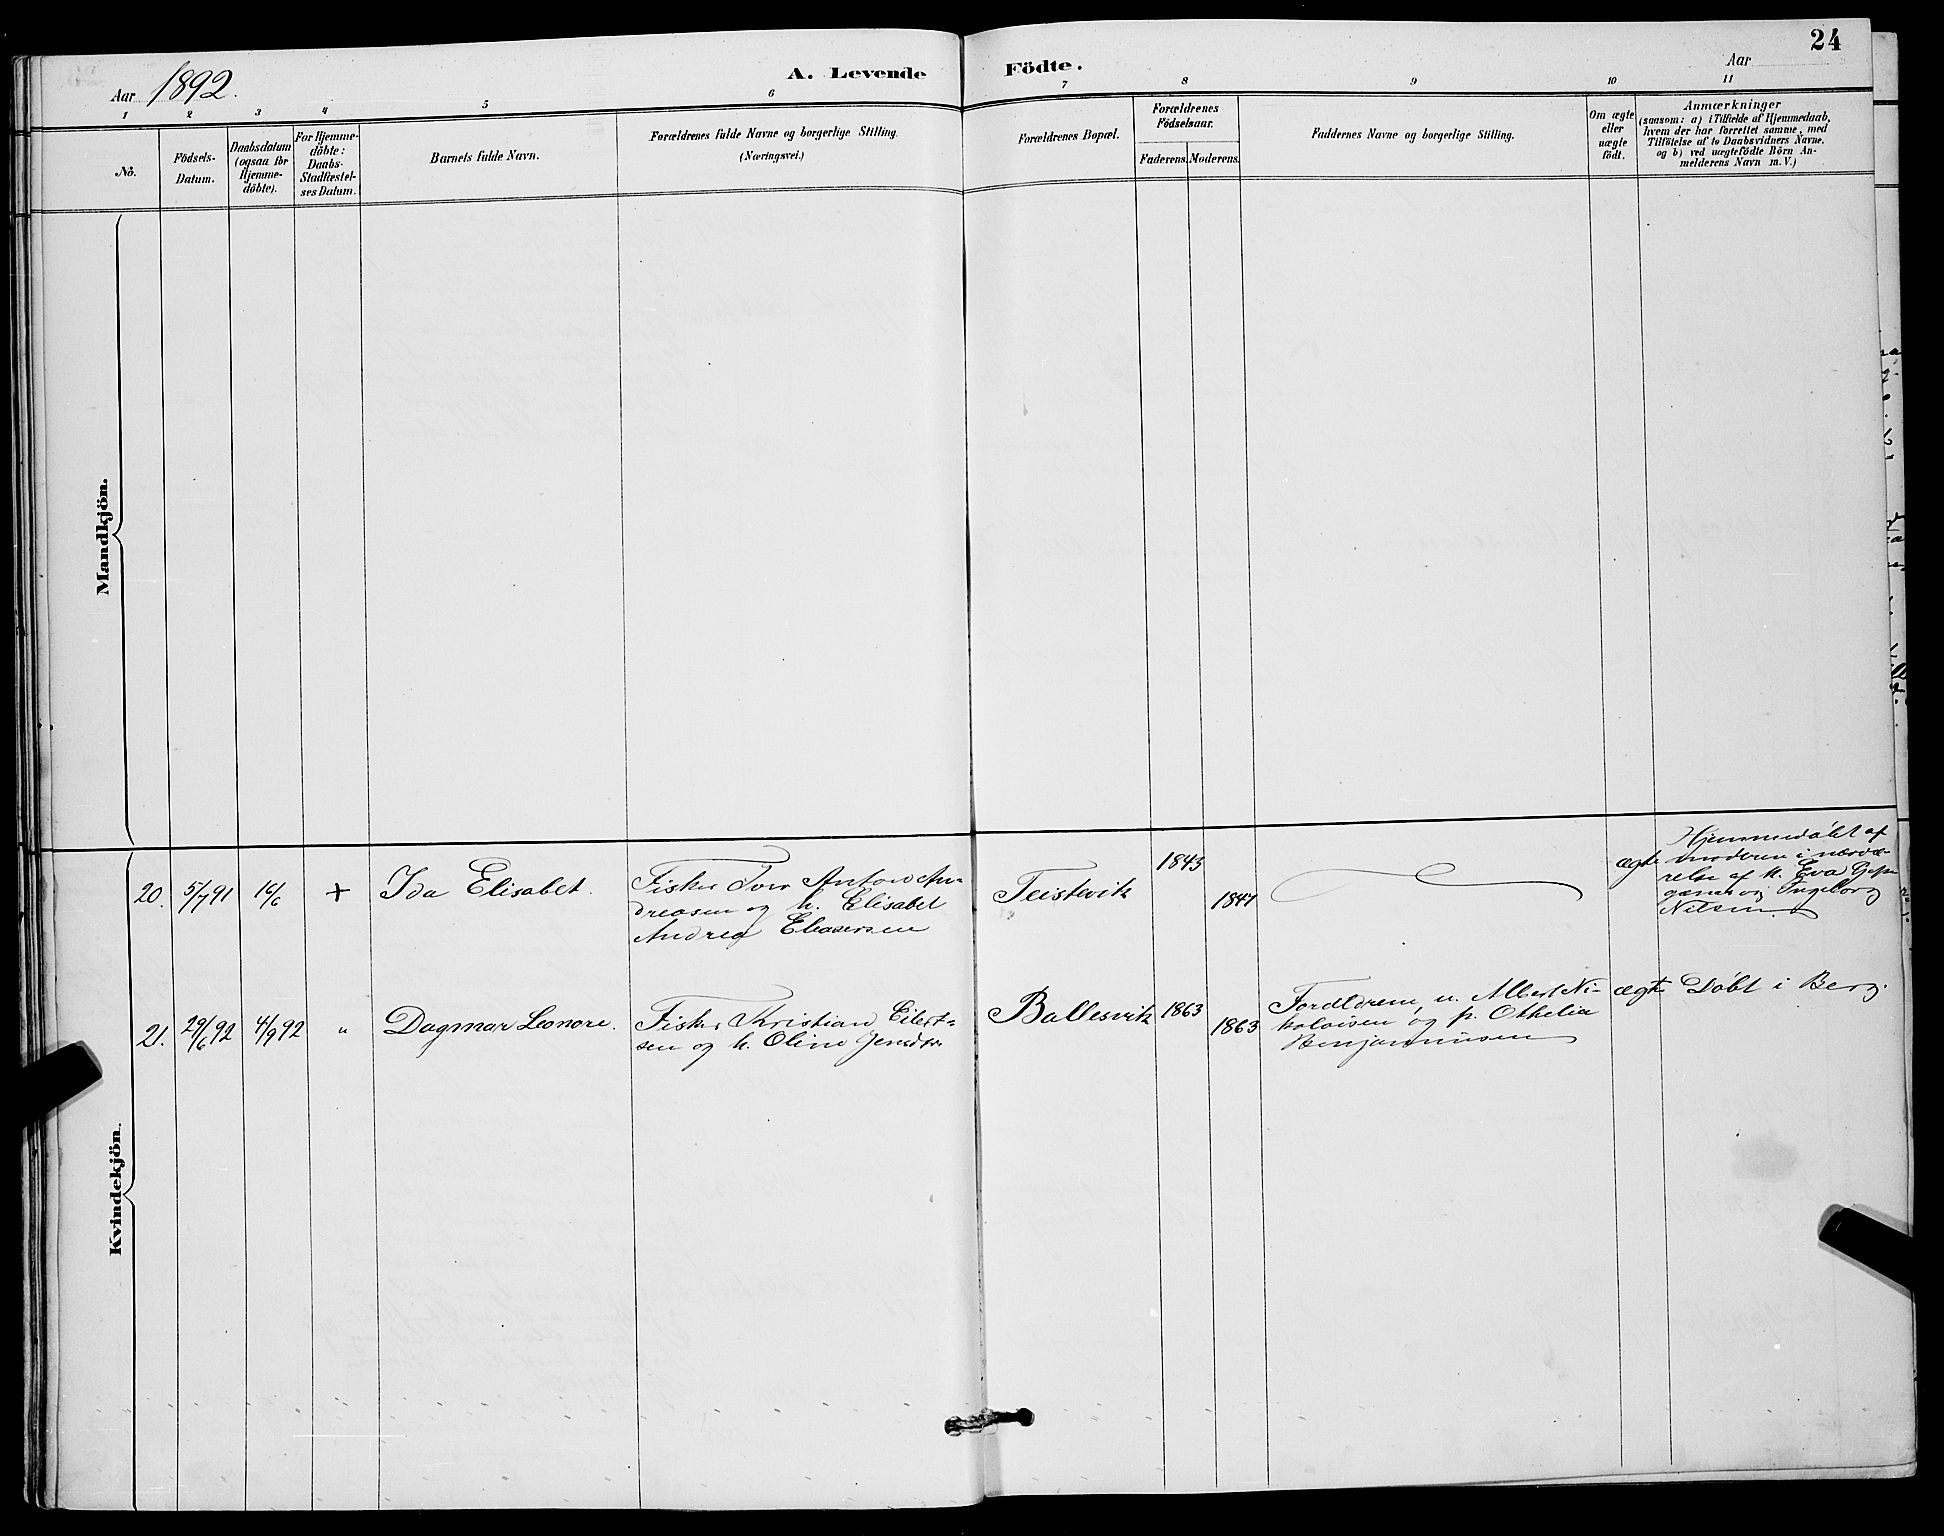 24
Aar 1892.
A. Levende Födte.
Aar
1 2 3 4 5 6 7 8 9 10 11
No.
Födsels-
Datum.
Daabsdatum
(ogsaa for
Hjemme-
döbte).
For Hjemme-
döbte:
Daabs-
Stadfæstel-
ses Datum.
Barnets fulde Navn.
Forældrenes fulde Navne og borgerlige Stilling.
(Næringsvei.)
Forældrenes Bopæl.
Forældrenes
Födselsaar.
Faderens. Moderens.
Faddernes Navne og borgerlige Stilling.
Om ægte
eller
uægte
født.
Anmærkninger
(saasom: a) i Tilfælde af Hjemmedaab,
hvem der har forrettet samme, med
Tilföielse af to Daabsvidners Navne,
og b) ved uægtefödte Börn An-
melderens Navn m. V.)
Mandkjön.
Kvindekjön.
20. 5/7 91 16/6 + Ida Elisabet.
Fisker Iver Anton An-
dreasen og h. Elisabet
Andrea Eliasersen
Teistevik 1843 1847
ægte
Hjemmedöbt af
moderen i nærvæ-
relse af k. Eva
og Ingeborg
Nilsen.
21. 29/6 92 4/9 92 " Dagmar Leonore.
Fisker Kristian Eilert-
sen og h. Oline Jensdtr.
Ballesvik 1863 1863
Forældrene, u. Albert Ni-
kolaisen og p. Othelia
Benjaminsen
ægte Döbt i Berg.